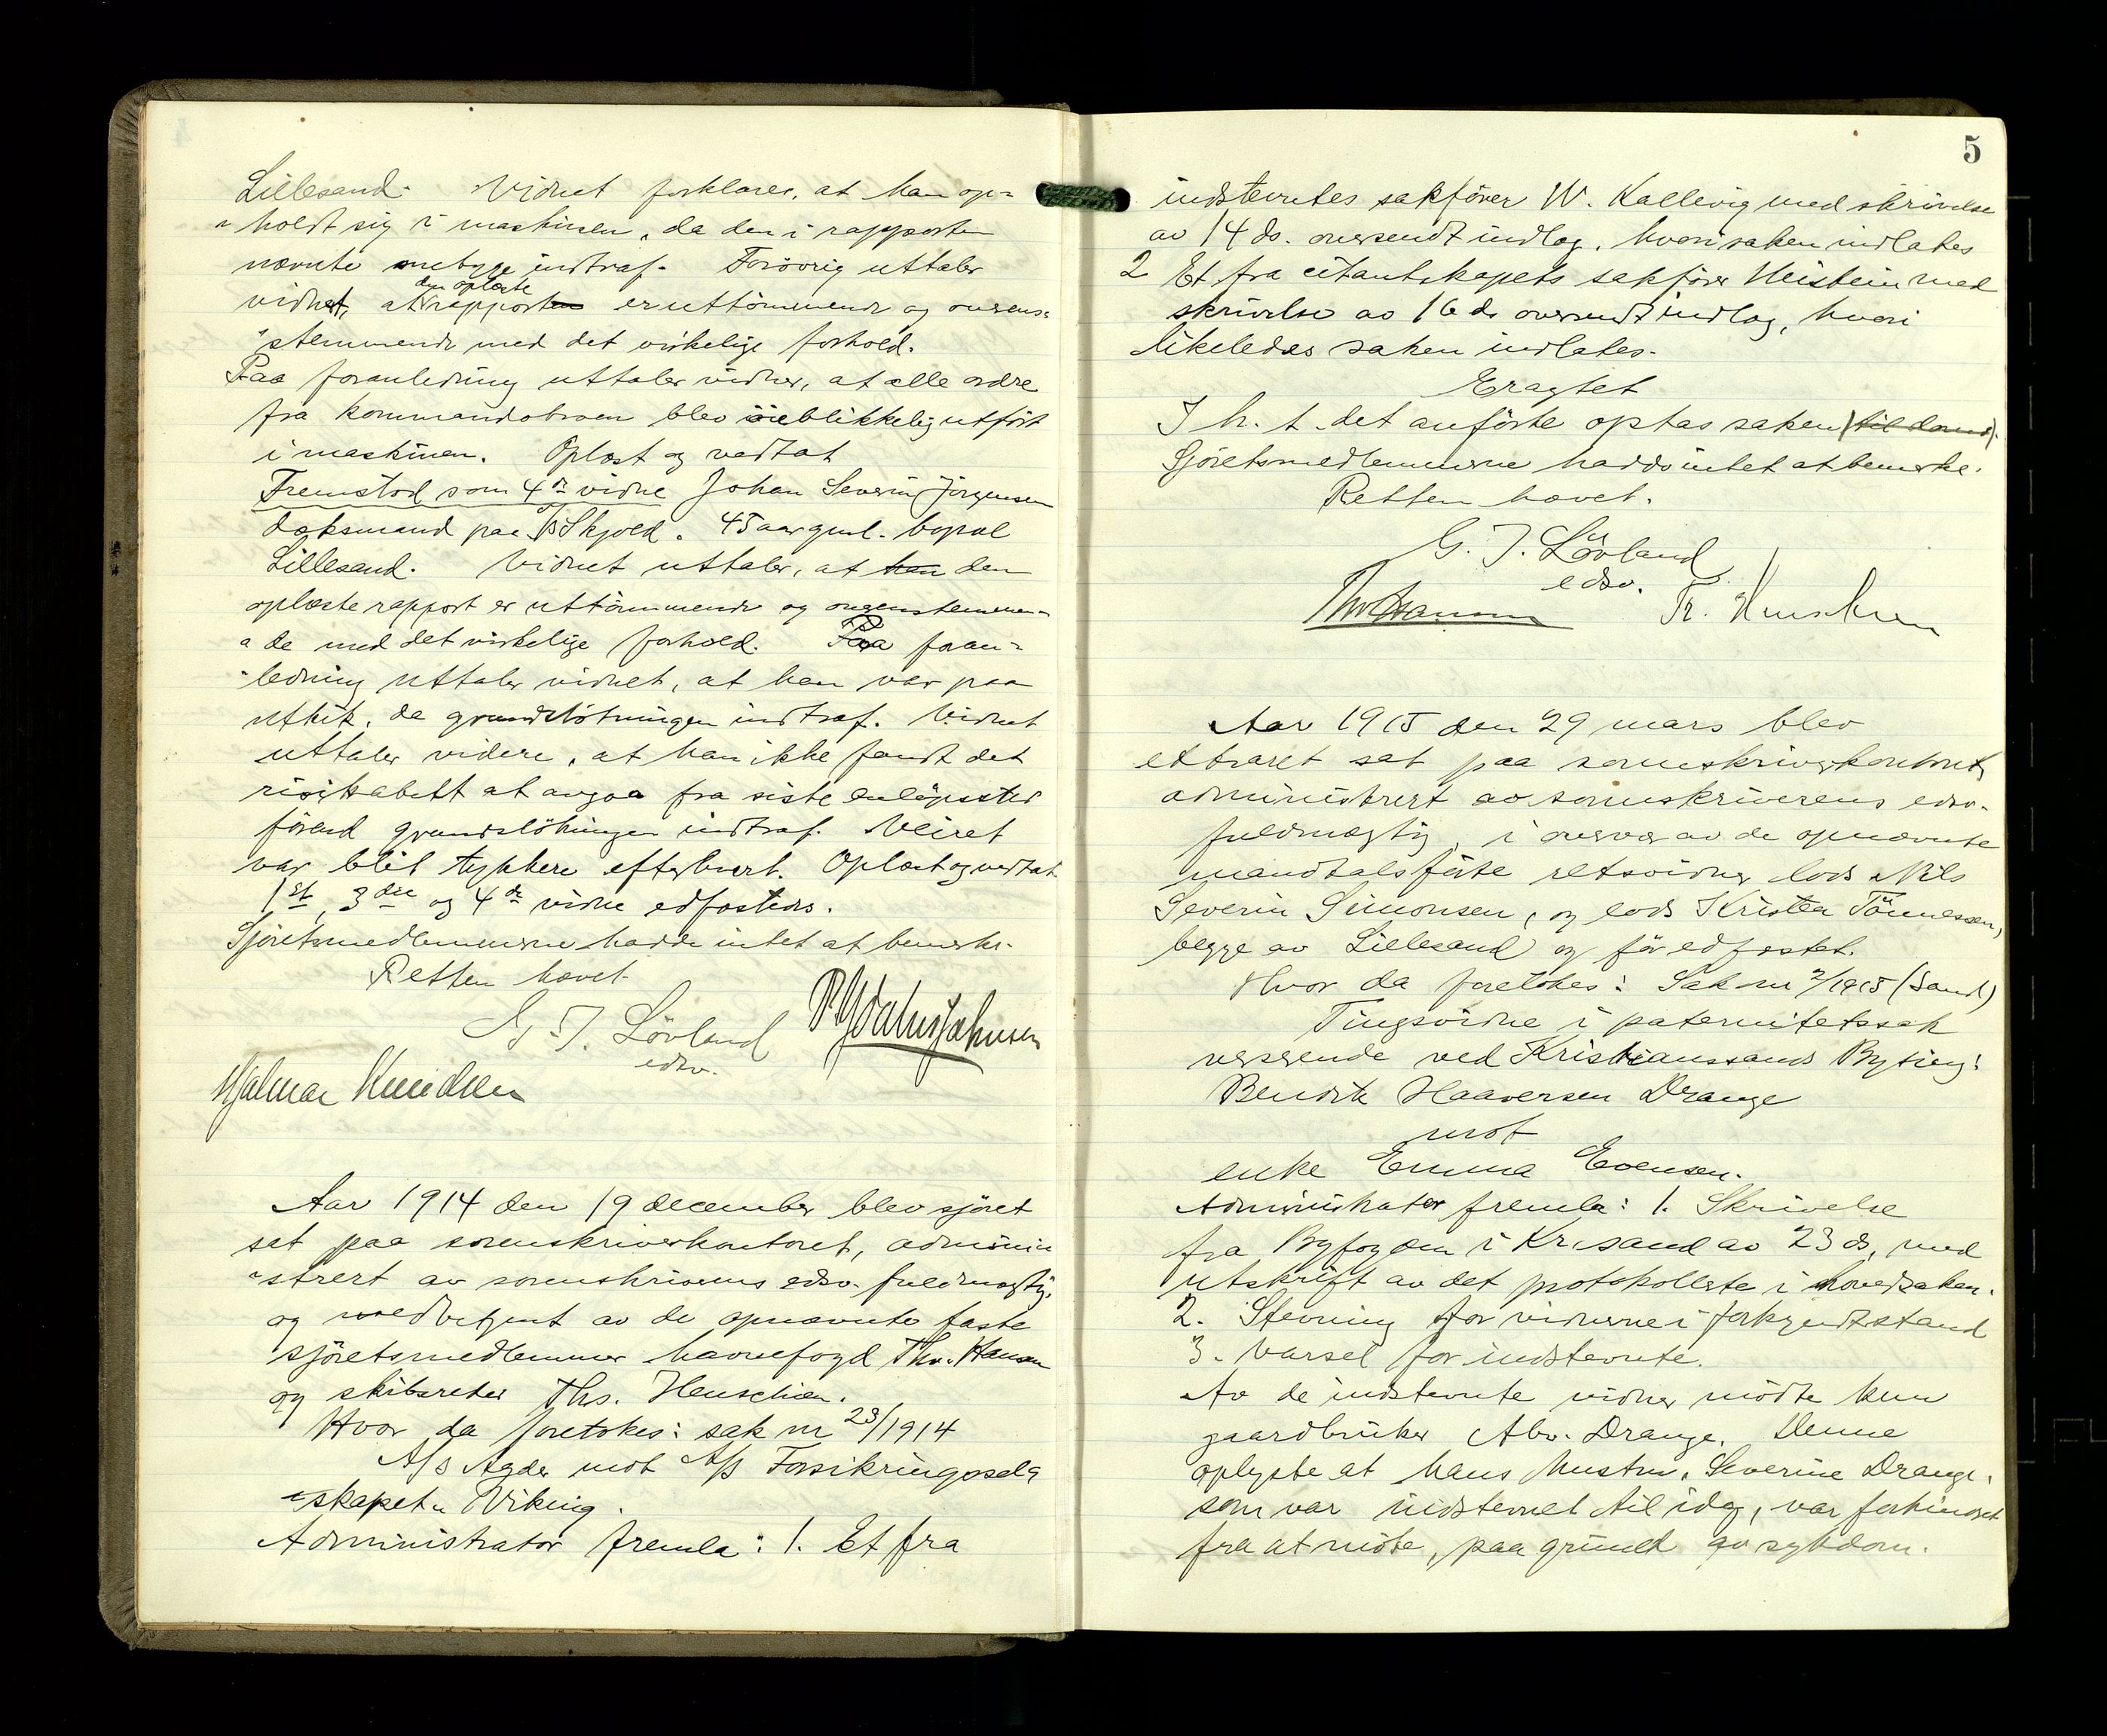 Lillesand. Vidnet forklarer, at han op=
"holdt sig i maskinen, da den i rapporten
nævnte indtraf. Forövrig uttaler
den oplæste
vidnet, at rapporten er uttömmende og overens=
"stemmende med det virkelige forhold.
Paa foranledning uttaler vidnet, at alle ordre
fra kommandobroen blev öieblikkelig utfört
i maskinen. Oplæst og vedtat
Fremstod som 4de vidne Johan Severin Jörgensen
daksmand paa D/S Skjold. 45 aar gml. bopæl
Lillesand. Vidnet uttaler, at han den
oplæste rapport er uttömmende og overenstemmen=
"de med det virkelige forhold. Paa foran=
"ledning uttaler vidnet, at han var paa
utkik, da grundstötningen indtraf. Vidnet
uttaler videre, at han ikke fandt det
risikabelt at avgaa fra siste anlöpssted
förend grundstötningen indtraf. Veiret
var blit tykkere efterhvert. Oplæst og vedtat
1st, 3die og 4de vidne edfæstedes.
Sjöretsmedlemmerne hadde intet at bemerke.
Retten hævet
G. T. Lövland
edsv.
Hjalmar Knudsen
Aar 1914 den 19 december blev sjöret
sat paa sorenskriverkontoret, admini
"strert av sorenskriverens edsv. fuldmægtig,
og medbetjent av de opnævnte faste
sjöretsmedlemmer havnefogd Thv. Hansen
og skibsreder Ths. Henschien.
Hvor da foretokes: sak nr 23/1914
A/S Agder mot A/S Forsikringssels
"skapet "Viking.
Administrator fremla: 1. Et fra
5
indstevntes sakförer W. Kallevig med skrivelse
av 14 ds. oversendt indlæg, hvori saken indlates
2 Et fra citantskapets sakförer Heistein med
skrivelse av 16 ds oversendt indlæg, hvori
likeledes saken indlates.
Eragtet
I h. t. det anförte optas saken (til doms).
Sjöretsmedlemmerne hadde intet at bemerke.
Retten hævet.
G. T. Lövland
edsv.
Thv Hansen Th. Henschien
Aar 1915 den 29 mars blev
extraret sat paa sorenskriverkontoret,
administrert av sorenskriverens edsv.
fuldmægtig, i overvær av de opnævnte
mandtalsförte retsvidner lods Nils
Severin Simonsen, og lods Kristen Tönnessen,
begge av Lillesand og för edfæstet.
Hvor da foretokes: Sak nr 2/1915 (Sand)
Tingsvidne i paternitetssak
verserende ved Kristianssands Byting:
Bendik Haaversen Drange
mot
enke Emma Evensen.
Administrator fremla: 1. Skrivelse
fra Byfogden i Kr.sand av 23 ds, med
utskrift av det protokollerte i hovedsaken.
2. Stevning for vidnerne i forkyndt stand
3. Varsel for indstevnte.
Av de indstevnte vidner mödte kun
gaardbruker Abr. Drange. Denne
oplyste at hans hustru, Severine Drange,
som var indstevnet til idag, var forhindret
fra at möte, paa grund av sykdom.